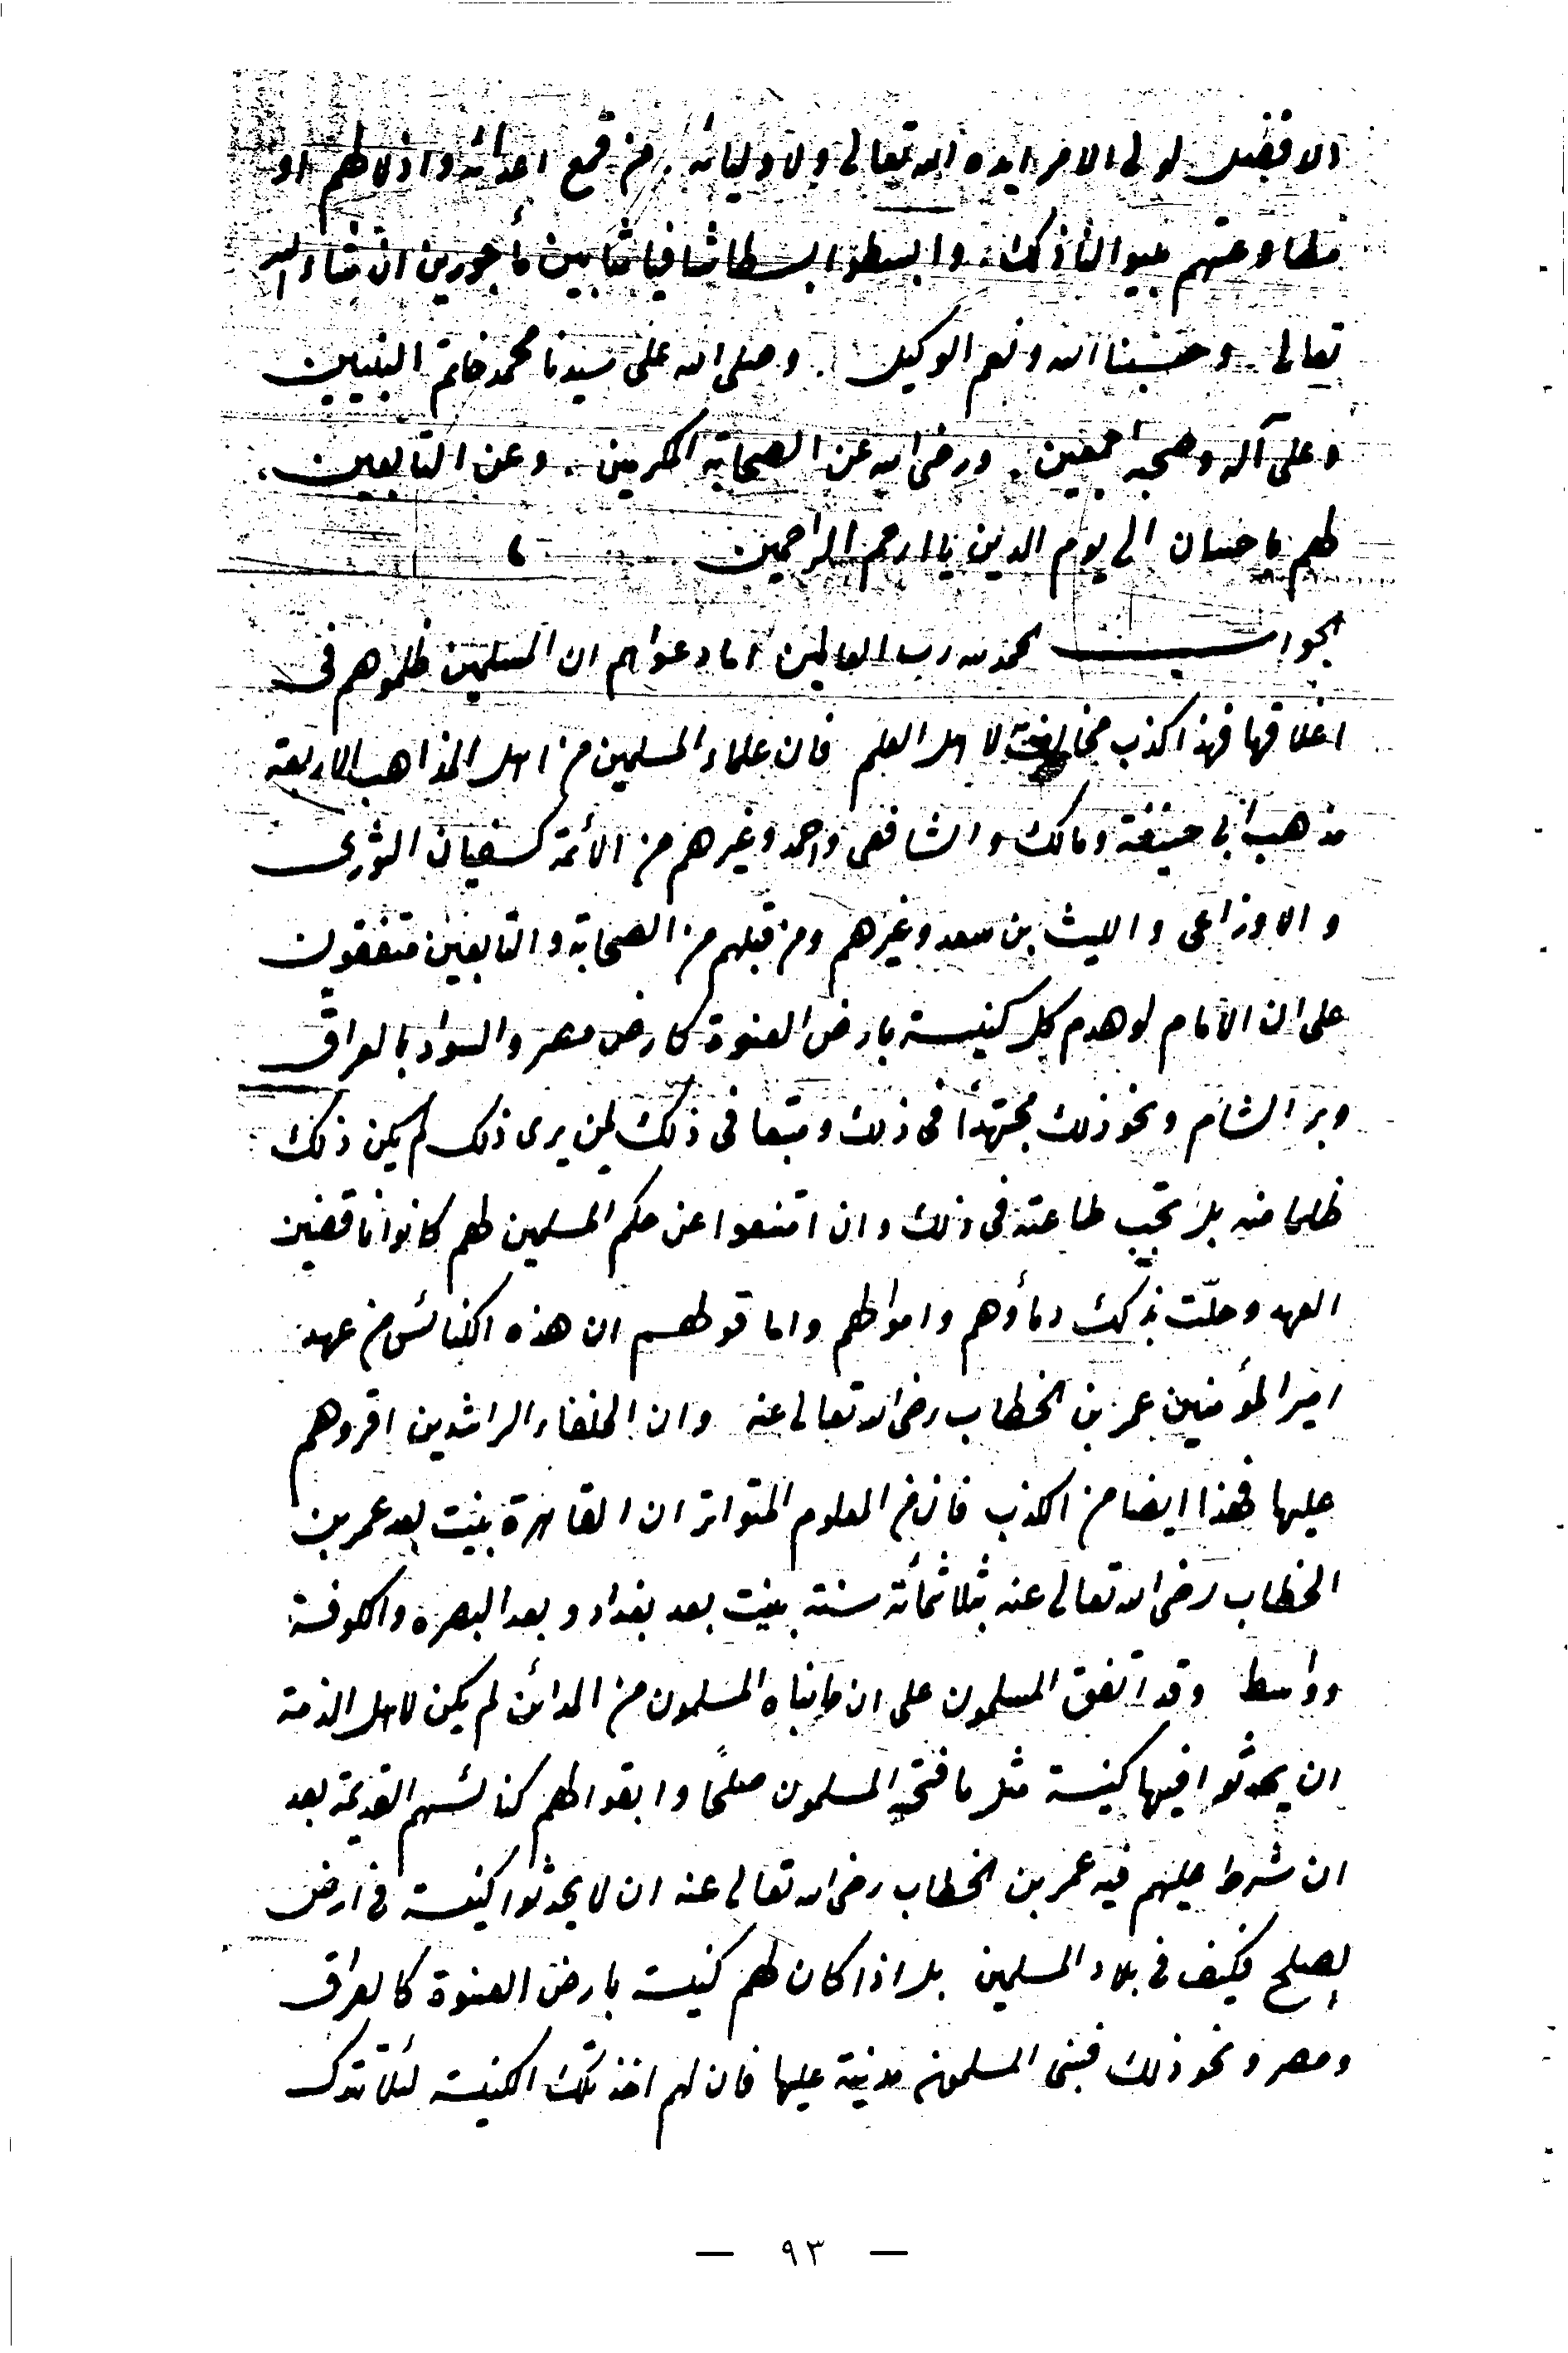 الافضل لولى الامر ايده الله تعالى ولاوليائه. من قمع اعدائه واذلالهم او
مطاوعتهم بينوا لنا ذلك. وابسطوا بسطا شافيا مثابين مأجورين ان شاء الله
تعالى. وحسبنا الله ونعم الوكيل. وصلى الله على سيدنا محمد خاتم النبيين
وعلى آله وصحبه اجمعين. ورضى الله عن الصحابة المكرمين. وعن التابعين،
لهم باحسان الى يوم الدين يا ارحم الراحمين
الجواب الحمد لله رب العالمين اما دعواهم ان المسلمين ظلموهم فى
اغلاقها فهذا كذب مخالف لاهل العلم فان علماء المسلمين من اهل المذاهب الاربعة
مذهب ابى حنيفة ومالك والشافعى واحمد وغيرهم من الأئمة كسفيان الثورى
والاوزاعى والليث بن سعد وغيرهم ومن قبلهم من الصحابة والتابعين متفقون
على ان الامام لو هدم كل كنيسة بارض العنوة كارض مصر والسواد بالعراق
وبر الشام ونحو ذلك مجتهدا فى ذلك ومتبعا فى ذلك لمن يرى ذلك لم يكن ذلك
ظلما منه بل تجب طاعته فى ذلك وان امتنعوا عن حكم المسلمين لهم كانوا ناقضين
العهد وحلّت بذلك دمأوهم واموالهم واما قولهم ان هذه الكنائس من عهد
امير المؤمنين عمر بن الخطاب رضى الله تعالى عنه وان الخلفاء الراشدين اقروهم
عليها فهذا ايضا من الكذب فان من المعلوم المتواتر ان القاهرة بنيت بعد عمر بن
الخطاب رضى الله تعالى عنه بثلاثمائة سنة بنيت بعد بغداد وبعد البصره والكوفة
وواسط وقد اتفق المسلمون على ان ما بناه المسلمون من المدائن لم يكن لاهل الذمة
ان يحدثوا فيها كنيسة مثل ما فتحه المسلمون صلحًا وابقوا لهم كنائسهم القديمة بعد
ان شرط عليهم فيه عمر بن الخطاب رضى الله تعالى عنه ان لا يحدثوا كنيسة فى ارض
الصلح فكيف فى بلاد المسلمين بل اذا كان لهم كنيسة بارض العنوة كالعراق
ومصر ونحو ذلك فبنى المسلمون مدينة عليها فان لهم اخذ تلك الكنيسة لئلا تترك
— ٩٣ —